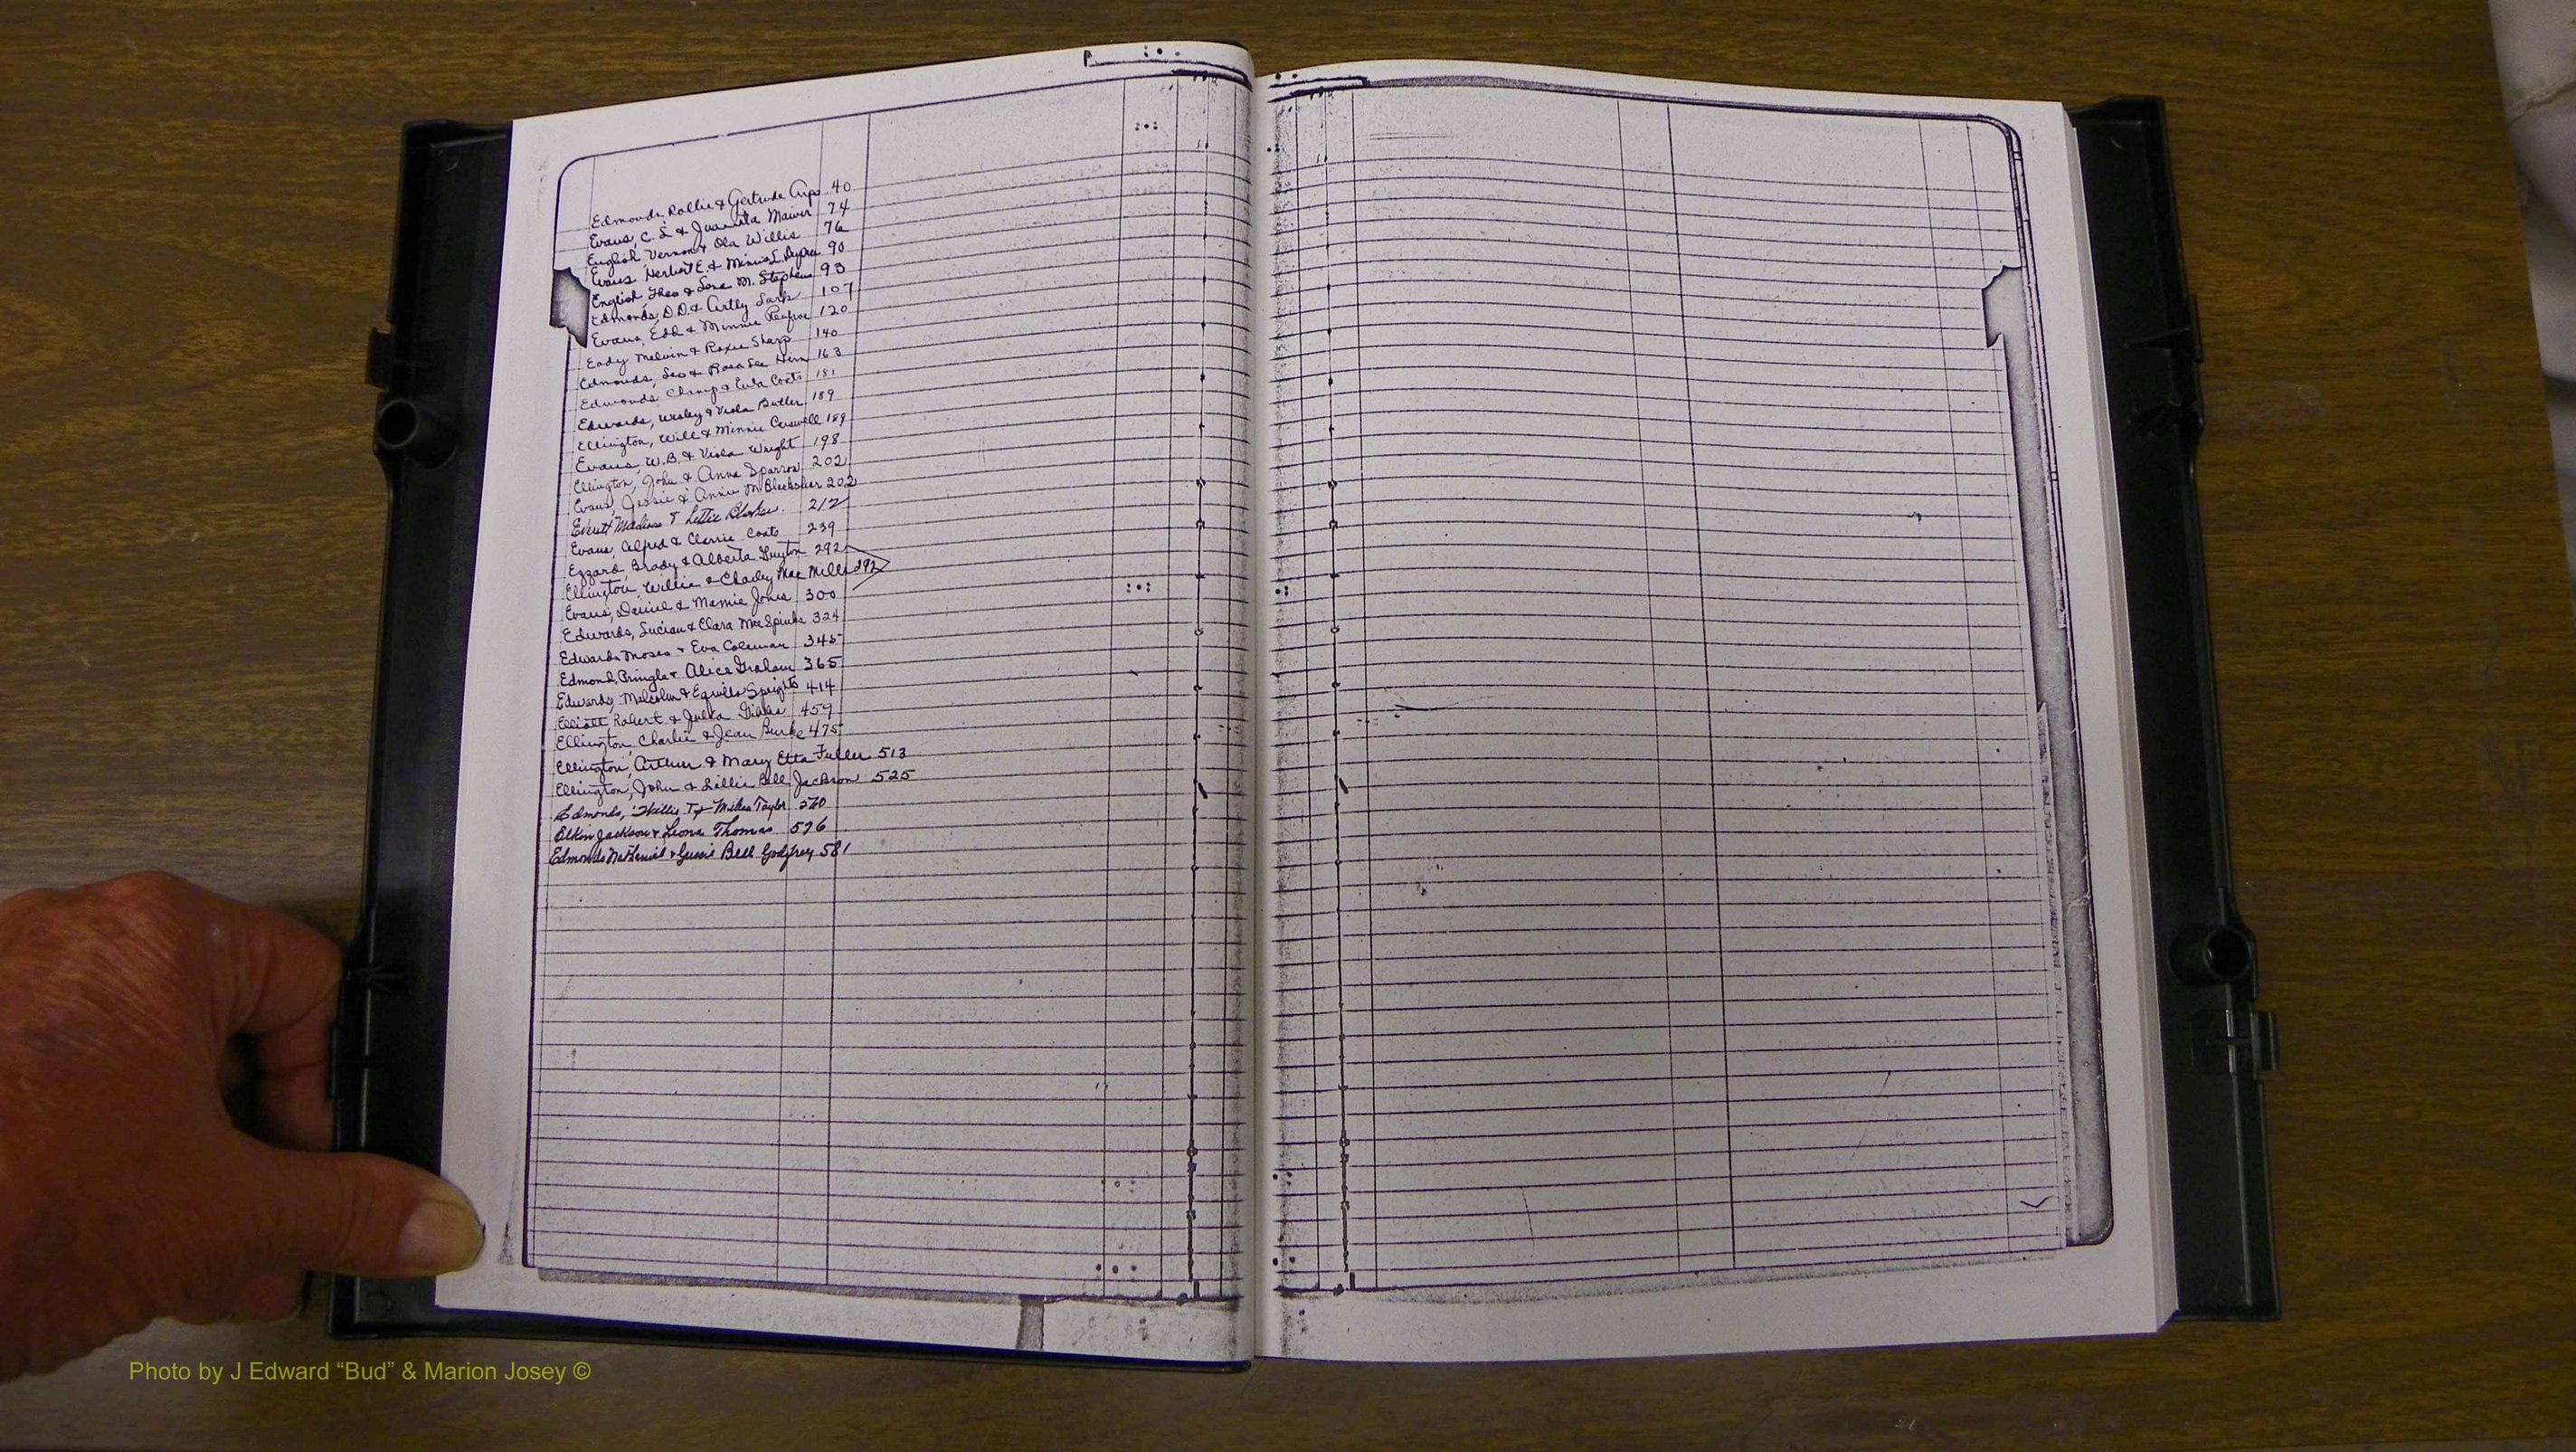 Edmonds, Rollie & Gertrude 40
Evans, C. L & Juanita Mawer 74
English, Vernon & Ola Willis 76
Evans, Herbert E. & Minnie L. 90
English, Theo & Lena M. Stephens 93
Edmonds, D.D. & Artly 107
Evans, Edd & Minnie Renfroe 120
Eady Melvin & Roxie Sharp 140
Edmonds, Leo & Rosa Lee 163
Edmonds Champ & Eula Coats 181
Edwards, Wesley & Viola Butler 189
Ellington, Will & Minnie Carswell 189
Evans, W.B. & Viola Wright 198
Ellington, John & Anna Sparrow 202
Evans, Jessie & Annie M. Blackshear 202
Everett Madison & Lettie 212
Evans, Alfred & Classie Coats 239
Ezzard, Brady & Alberta Guyton 292
Ellington, Willie & Charley Mae Mills 292
Evans, Daniel & Mamie Jones 300
Edwards, Lucian & Clara Mae Spinks 324
Edwards Moses & Eva Coleman 345
Edmond, Pringle & Alice Graham 365
Edwards, Malcolm & Speights 414
Elliott Robert & Julia 459
Ellington, Charlie & Jean Burke 475
Ellington, Arthur & Mary Etta Fuller 513
Ellington, John & Lillie Bell Jackson 525
Edmonds, Willie T & Taylor
Elkin Jackson & Leona Thomas 576
Edmonds Nathaniel & Gussie Bell Godfrey 581
Photo by J Edward “Bud” & Marion Josey ©